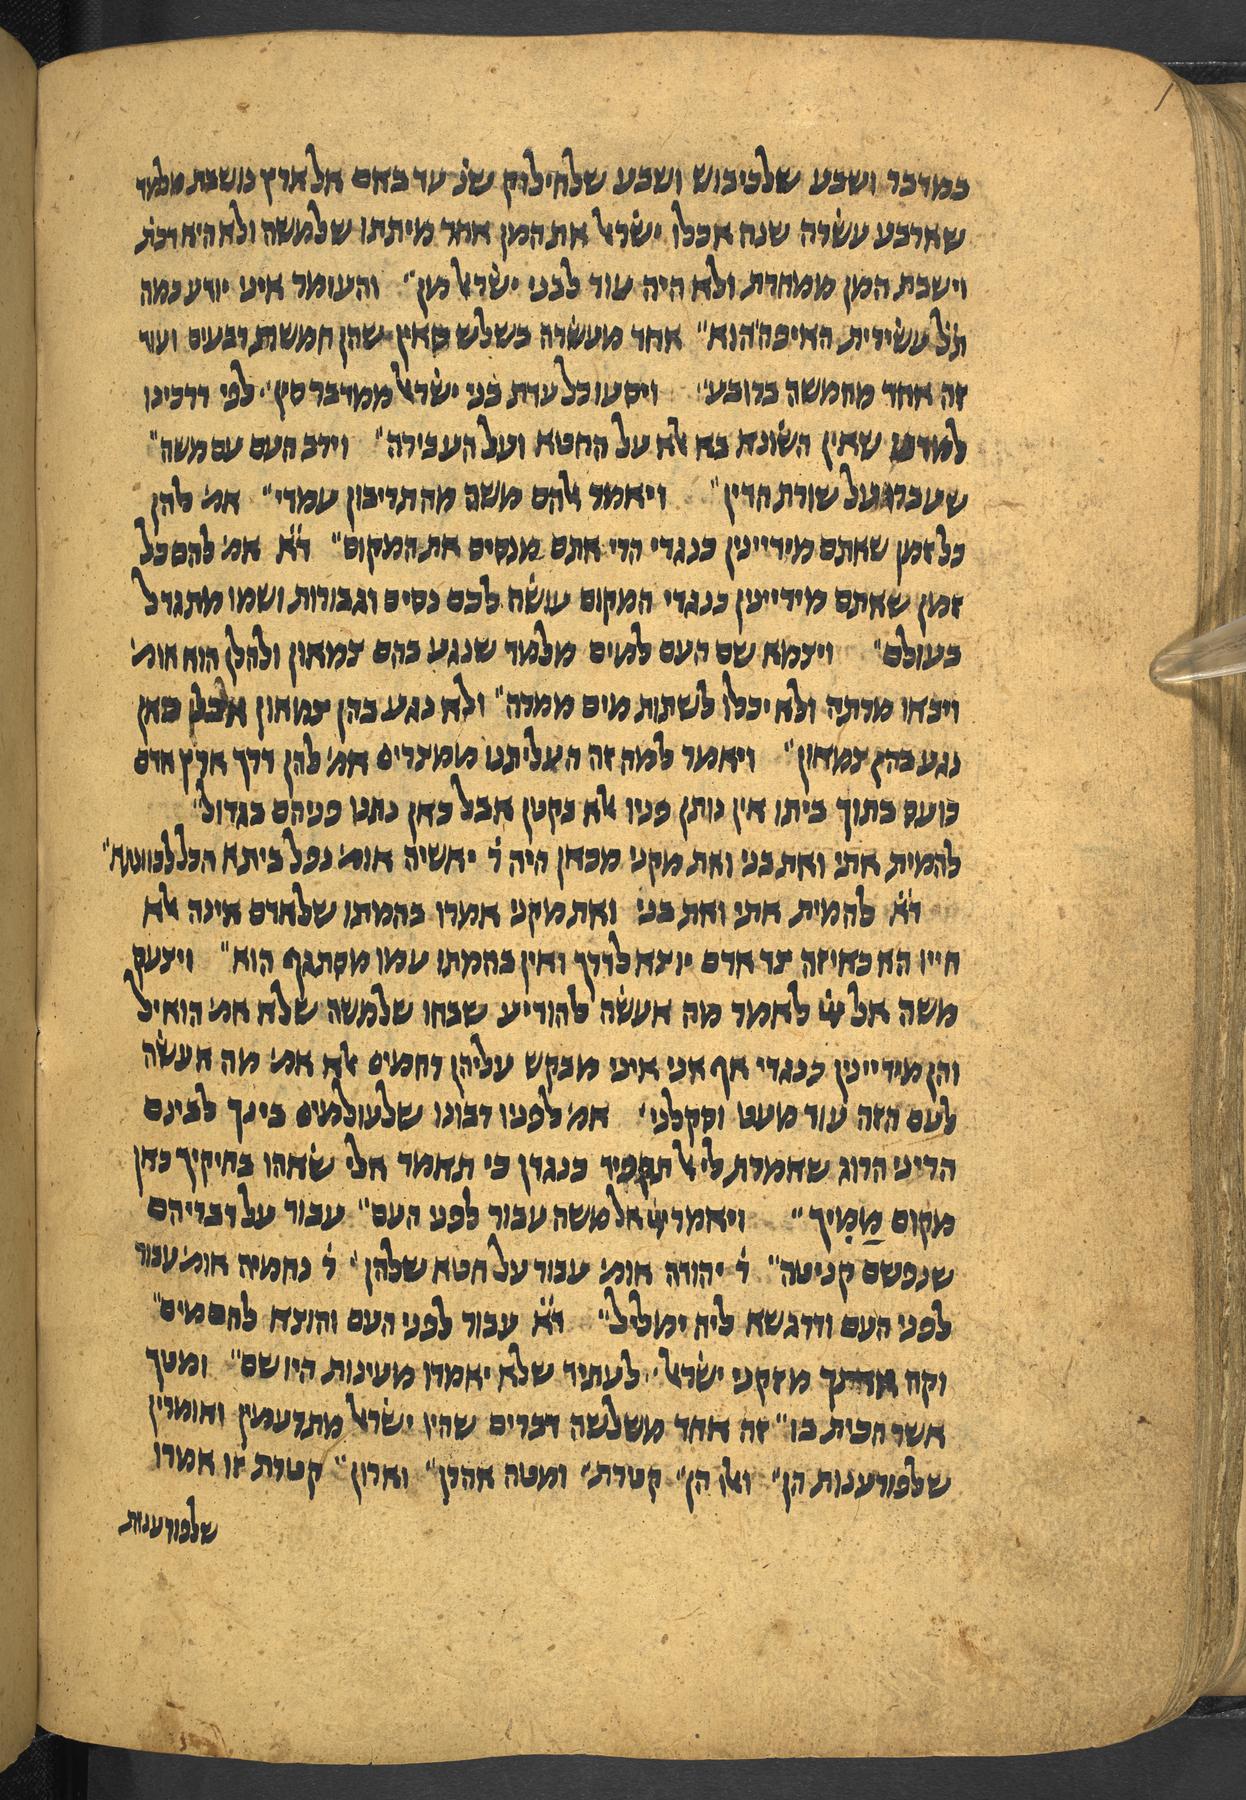 במדבר ושבע שלכיבוש ושבע שלחילוק שנ׳ עד באם אל ארץ נושבת מלמד
שארבע עשרה שנה אכלו ישר׳ את המן אחר מיתתו שלמשה ולא היא רבת
וישבת המן ממחרת ולא היה עוד לבני ישר׳ מן״ והעומר איני יודע כמה
ת״ל עשירית האיפה הוא״ אחד מעשרה בשלש סאין שהן חמשת רבעים ועוד
זה אחד מחמשה ברובע״ ויסעו כל עדת בני ישר׳ ממדבר סין״ לפי דרכינו
למדנו שאין השונא בא אלא על החטא ועל העבירה״ וירב העם עם משה״
שעברו על שורת הדין״ ויאמר להם משה מה תריבון עמדי״ אמ׳ להן
כל זמן שאתם מידיינין כנגדי הרי אתם מנסים את המקום״ ד״א אמ׳ להם כל
זמן שאתם מידיינין כנגדי המקום עושה לכם נסים וגבורות ושמו מתגדל
בעולם״ ויצמא שם העם למים מלמד שנגע בהם צמאון ולהלן הוא אומ׳
ויבאו מרתה ולא יכלו לשתות מים ממרה״ ולא נגע בהן צמאון אבל כאן
נגע בהן צמאון״ ויאמר למה זה העליתנו ממצרים אמ׳ להן דרך ארץ אדם
כועס בתוך ביתו אין נותן פניו אלא בקטן אבל כאן נתנו פניהם בגדול״
להמית אתי ואת בני ואת מקני מכאן היה ר׳ יאשיה אומ׳ נפל ביתא הבל לכוונתא״
ד״א להמית אתי ואת בני ואת מקני אמרו בהמתו שלאדם אינה אלא
חייו הא כאיזה צד אדם יוצא לדרך ואין בהמתו עמו מסתגף הוא״ ויצעק
משה אל ייי לאמר מה אעשה להודיע שבחו שלמשה שלא אמ׳ הואיל
והן מידיינין כנגדי אף אני איני מבקש עליהן רחמים אלא אמ׳ מה אעשה
לעם הזה עוד מעט וסקלני״ אמ׳ לפניו רבונו שלעולמים בינך לבינם
הריני הרוג שאמרת לי אל תקפיד כנגדן כי תאמר אלי שאהו בחיקיך כאן
מקום מַמִיך״ ויאמר ייי אל משה עבור לפני העם״ עבור על דבריהם
שנפשם קניטה״ ר׳ יהודה אומ׳ עבור על חטא שלהן״ ר׳ נחמיה אומ׳ עבור
לפני העם ודרגשא ליה ימליל״ ד״א עבור לפני העם והוצא להם מים״
וקח אתך מזקני ישר׳״ לעתיד שלא יאמרו מעינות היו שם״ ומטך
אשר הכית בו״ זה אחד משלשה דברים שהיו ישר׳ מתרעמין ואומרין
שלפורענות הן״ ואלו הן״ קטרת״ ומטה אהרן״ וארון״ קטרת זו אמרו
שלפורענות